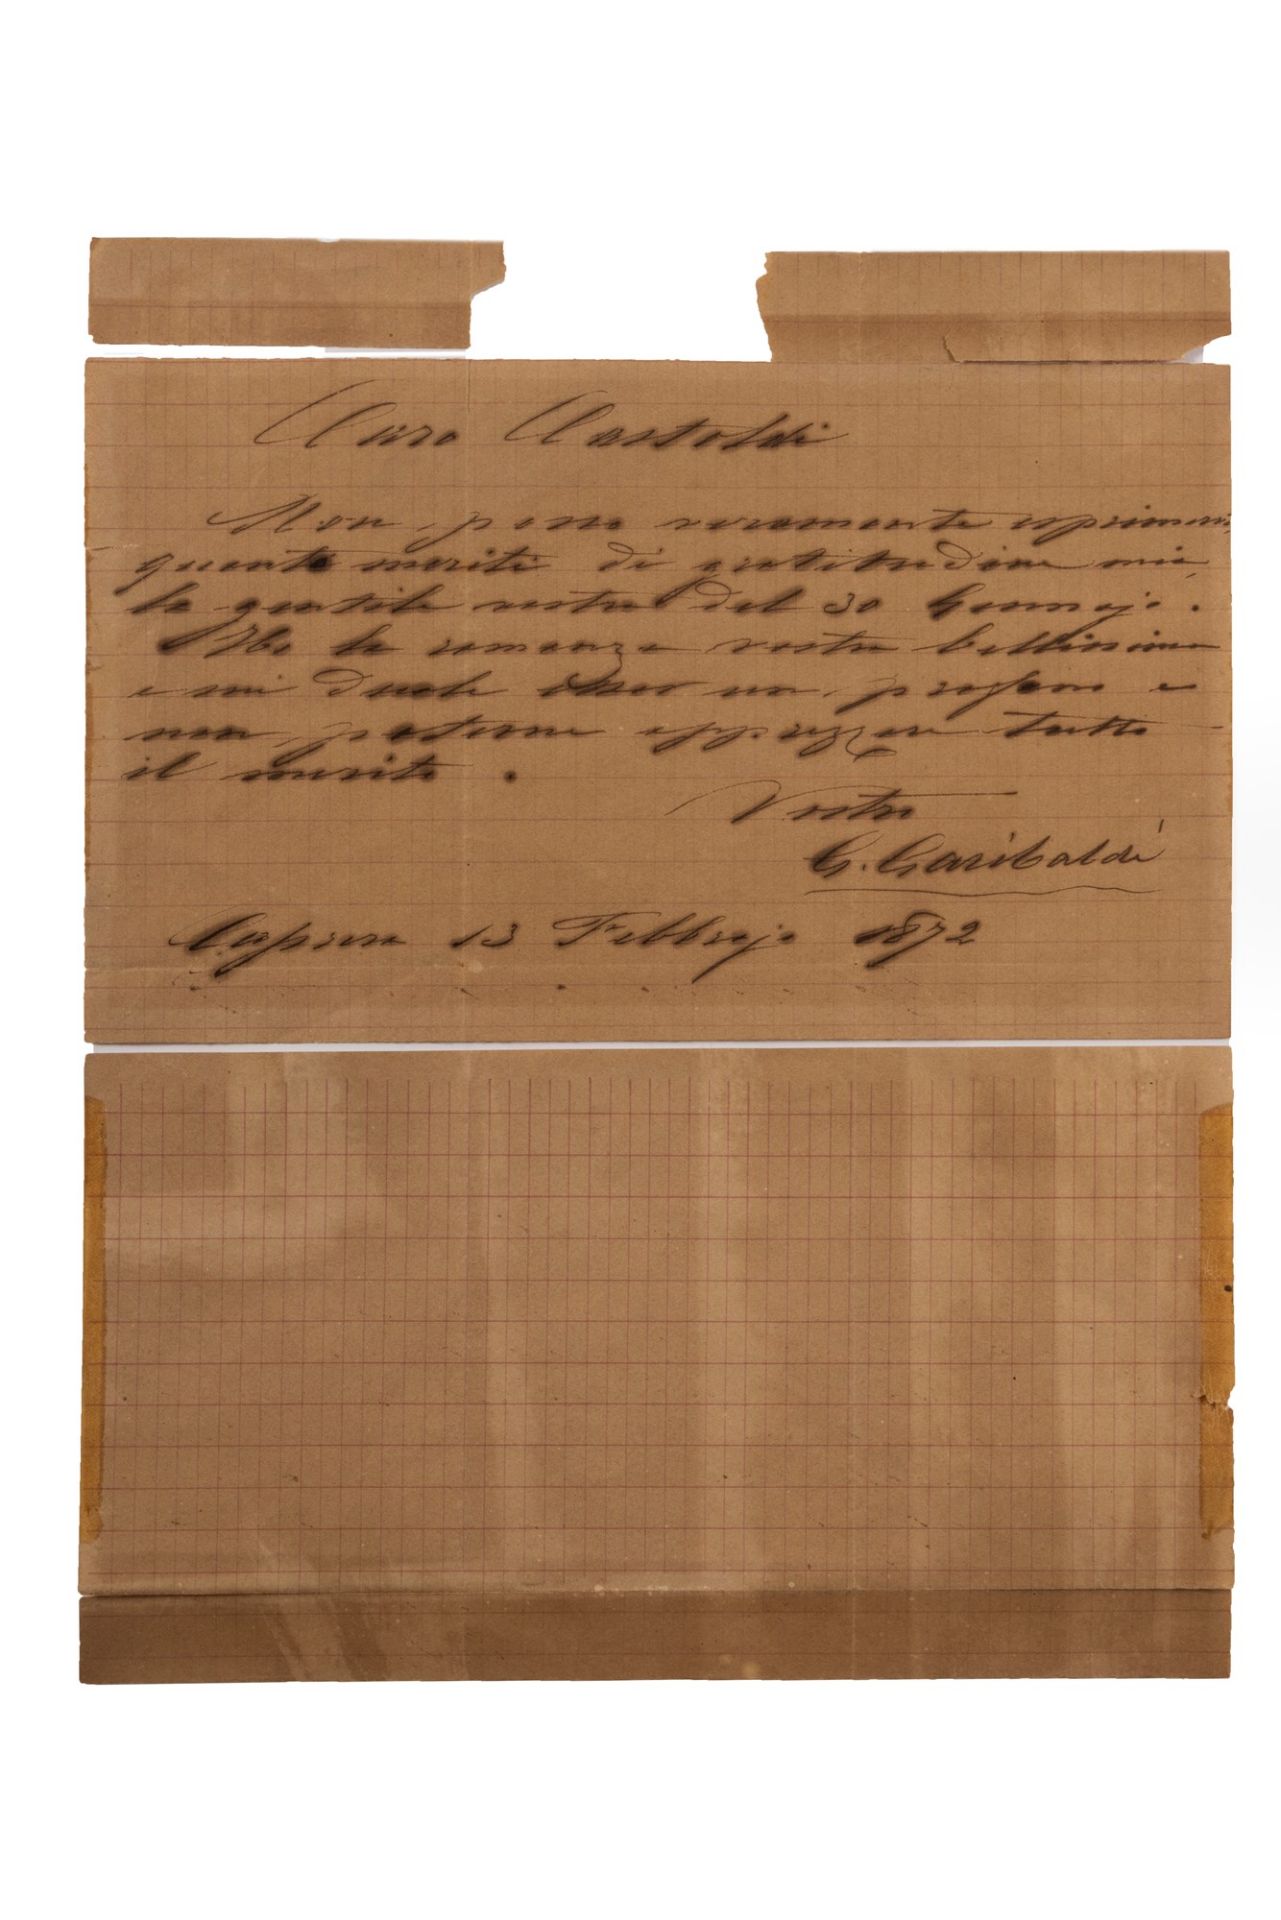 Caro Castoldi
Non posso veramente esprimervi
quanto meriti di gratitudine mia
la gentile vostra del 30 Gennajo.
Ho la romanza vostra bellissima
e mi duole esser un profano e
non poterne apprezzare tutto
il merito.
Vostro
G. Garibaldi
Caprera 13 Febbrajo 1872